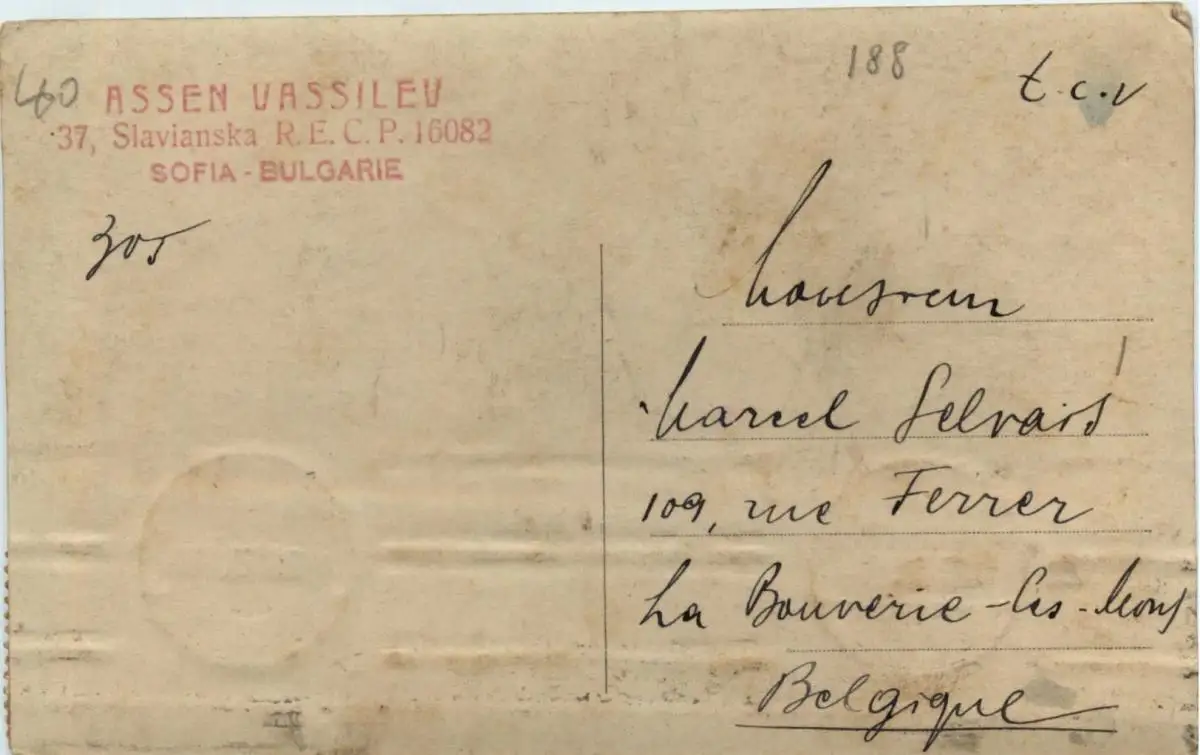 188
t.c.v
40
ASSEN VASSILEV
37, Slavianska R. E. C. P. 16082
SOFIA - BULGARIE
305
Monsieur
Marcel Gelvais
109, rue Ferrer
La Bouverie-les-Mons
Belgique